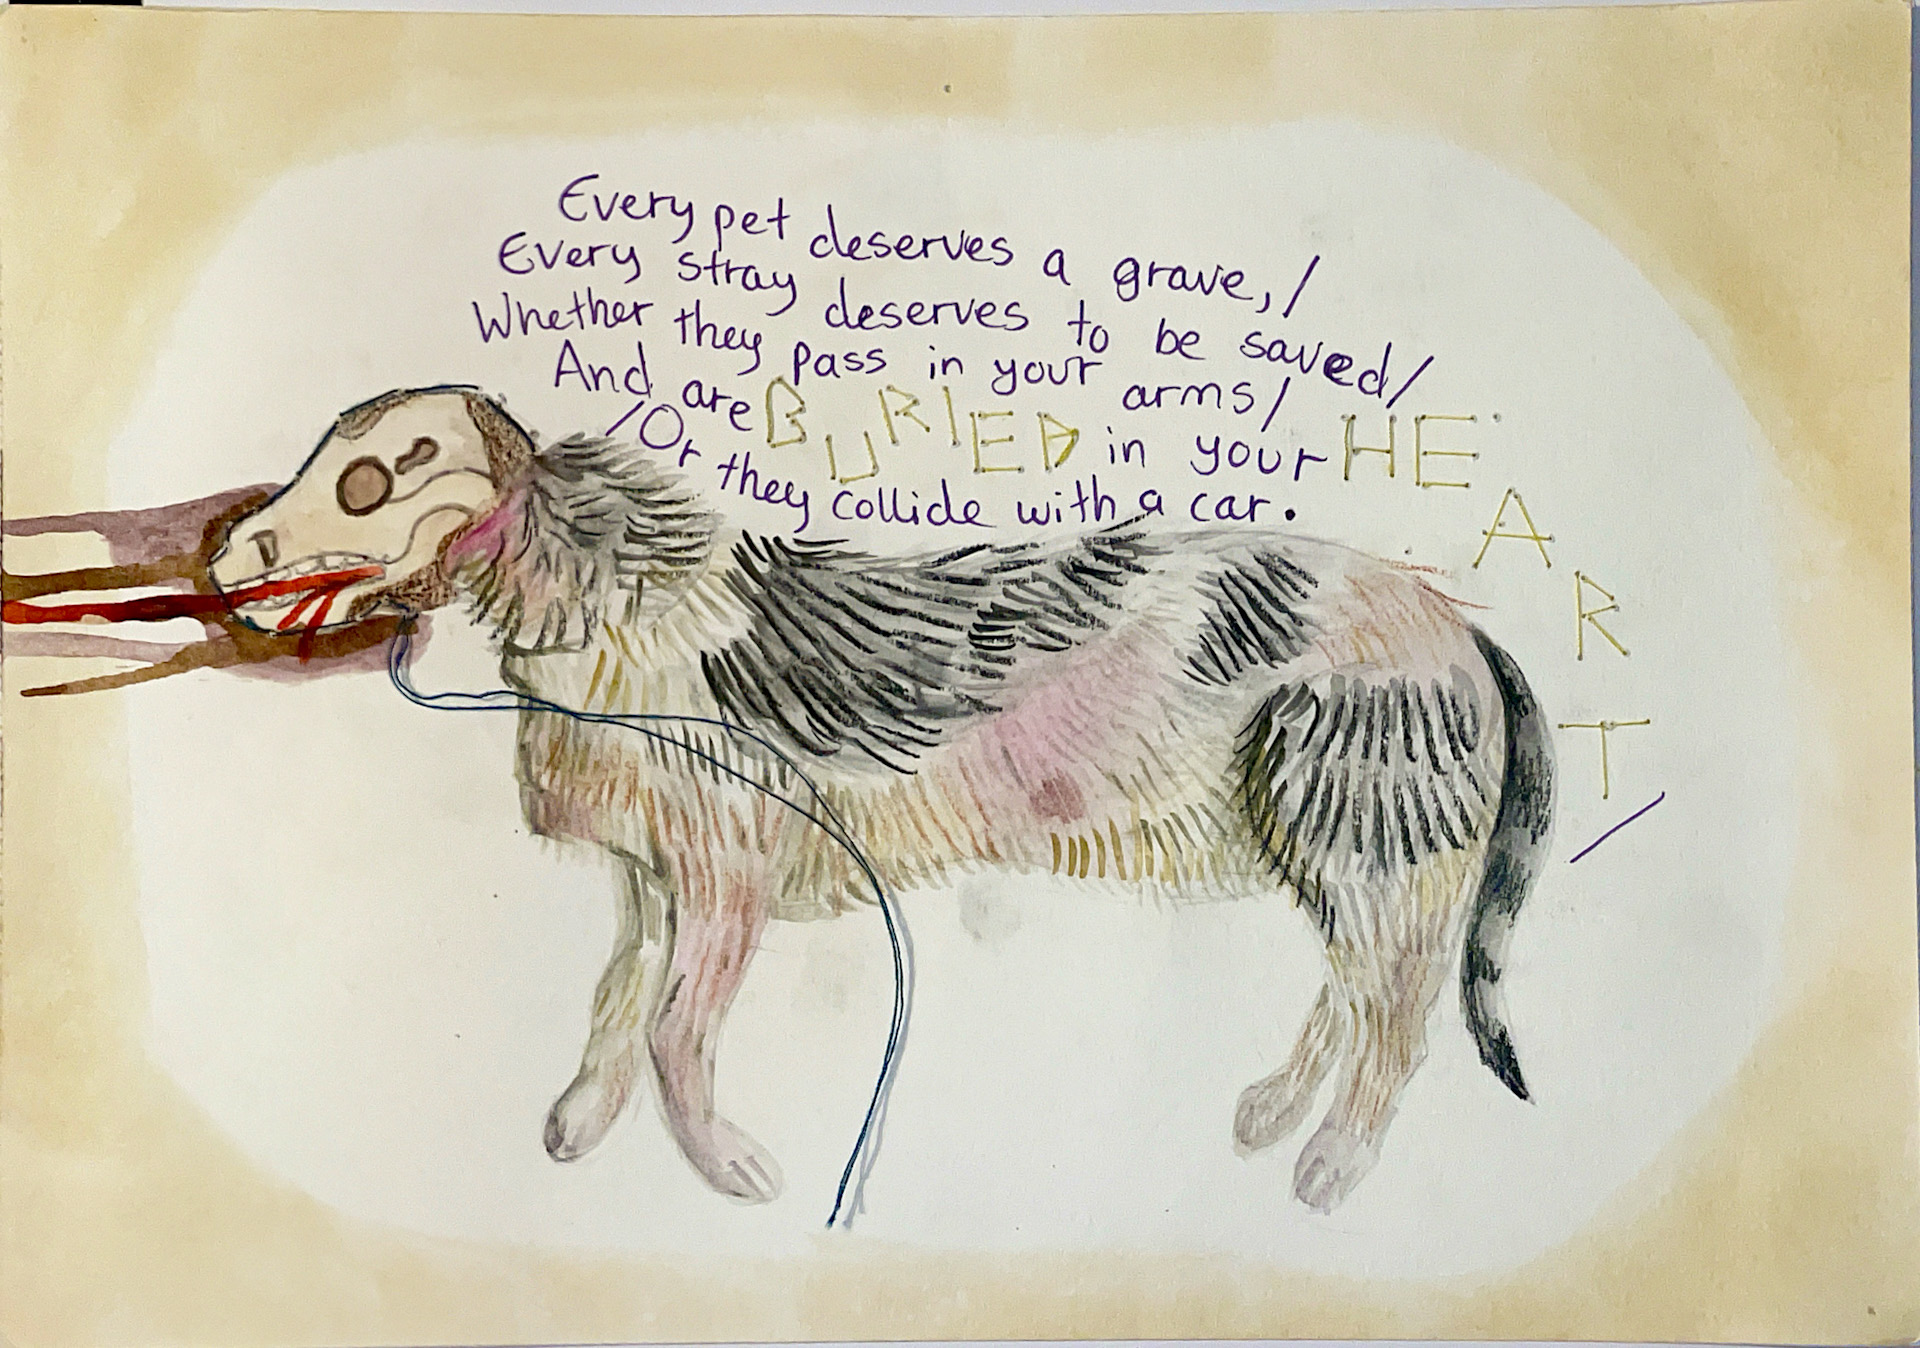 Every pet deserves a grave,/
Every stray deserves to be saved/
Whether they pass in your arms/
And are BURIED in your HEART/
/Or they collide with a car.